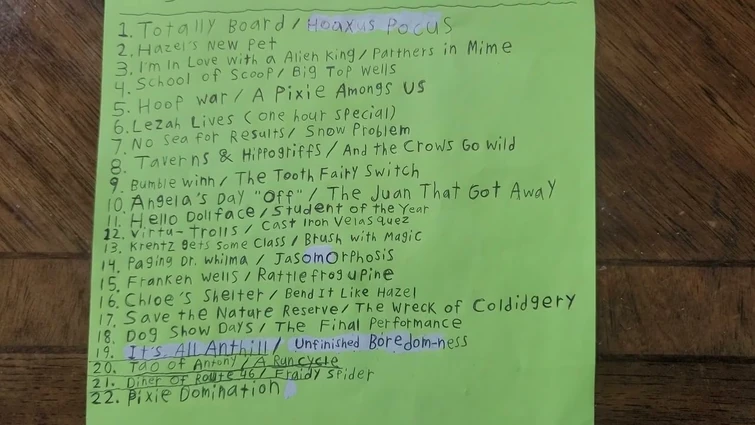 1. Totally Board / Hoaxus Pocus
2. Hazel's New Pet
3. I'm In Love With a Alien King / Partners in Mime
4. School of Scoop / Big Top Wells
5. Hoop War / A Pixie Amongs Us
6. Lezah Lives (one hour special)
7. No Sea for Results / Snow Problem
8. Taverns & Hippogriffs / And the Crows Go Wild
9. Bumble Winn / The Tooth Fairy Switch
10. Angela's Day "Off" / The Juan That Got Away
11. Hello Dollface / Student of the Year
12. Virtu-Trolls / Cast Iron Velasquez
13. Krentz gets Some Class / Brush with Magic
14. Paging Dr. Whilma / Jasomorphosis
15. Franken Wells / Rattlefrogupine
16. Chloe's Shelter / Bend It Like Hazel
17. Save the Nature Reserve / The Wreck of Coldidgery
18. Dog Show Days / The Final Performance
19. It's All Anthill / Unfinished Boredom-ness
20. Tao of Antony / A Run Cycle
21. Diner of Route 46 / Fraidy Spider
22. Pixie Domination